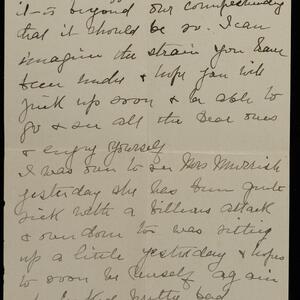 it is beyond our comprehending
that it should be so. I can
imagine the strain you have
been under & hope you will
pick up soon & be able to
go & see all the dear ones
& enjoy yourself
I was over to see Mrs
yesterday she has been quite
sick with a billious attack
& run down too was sitting
up a little yesterday & hopes
to soon be herself again
pretty bad